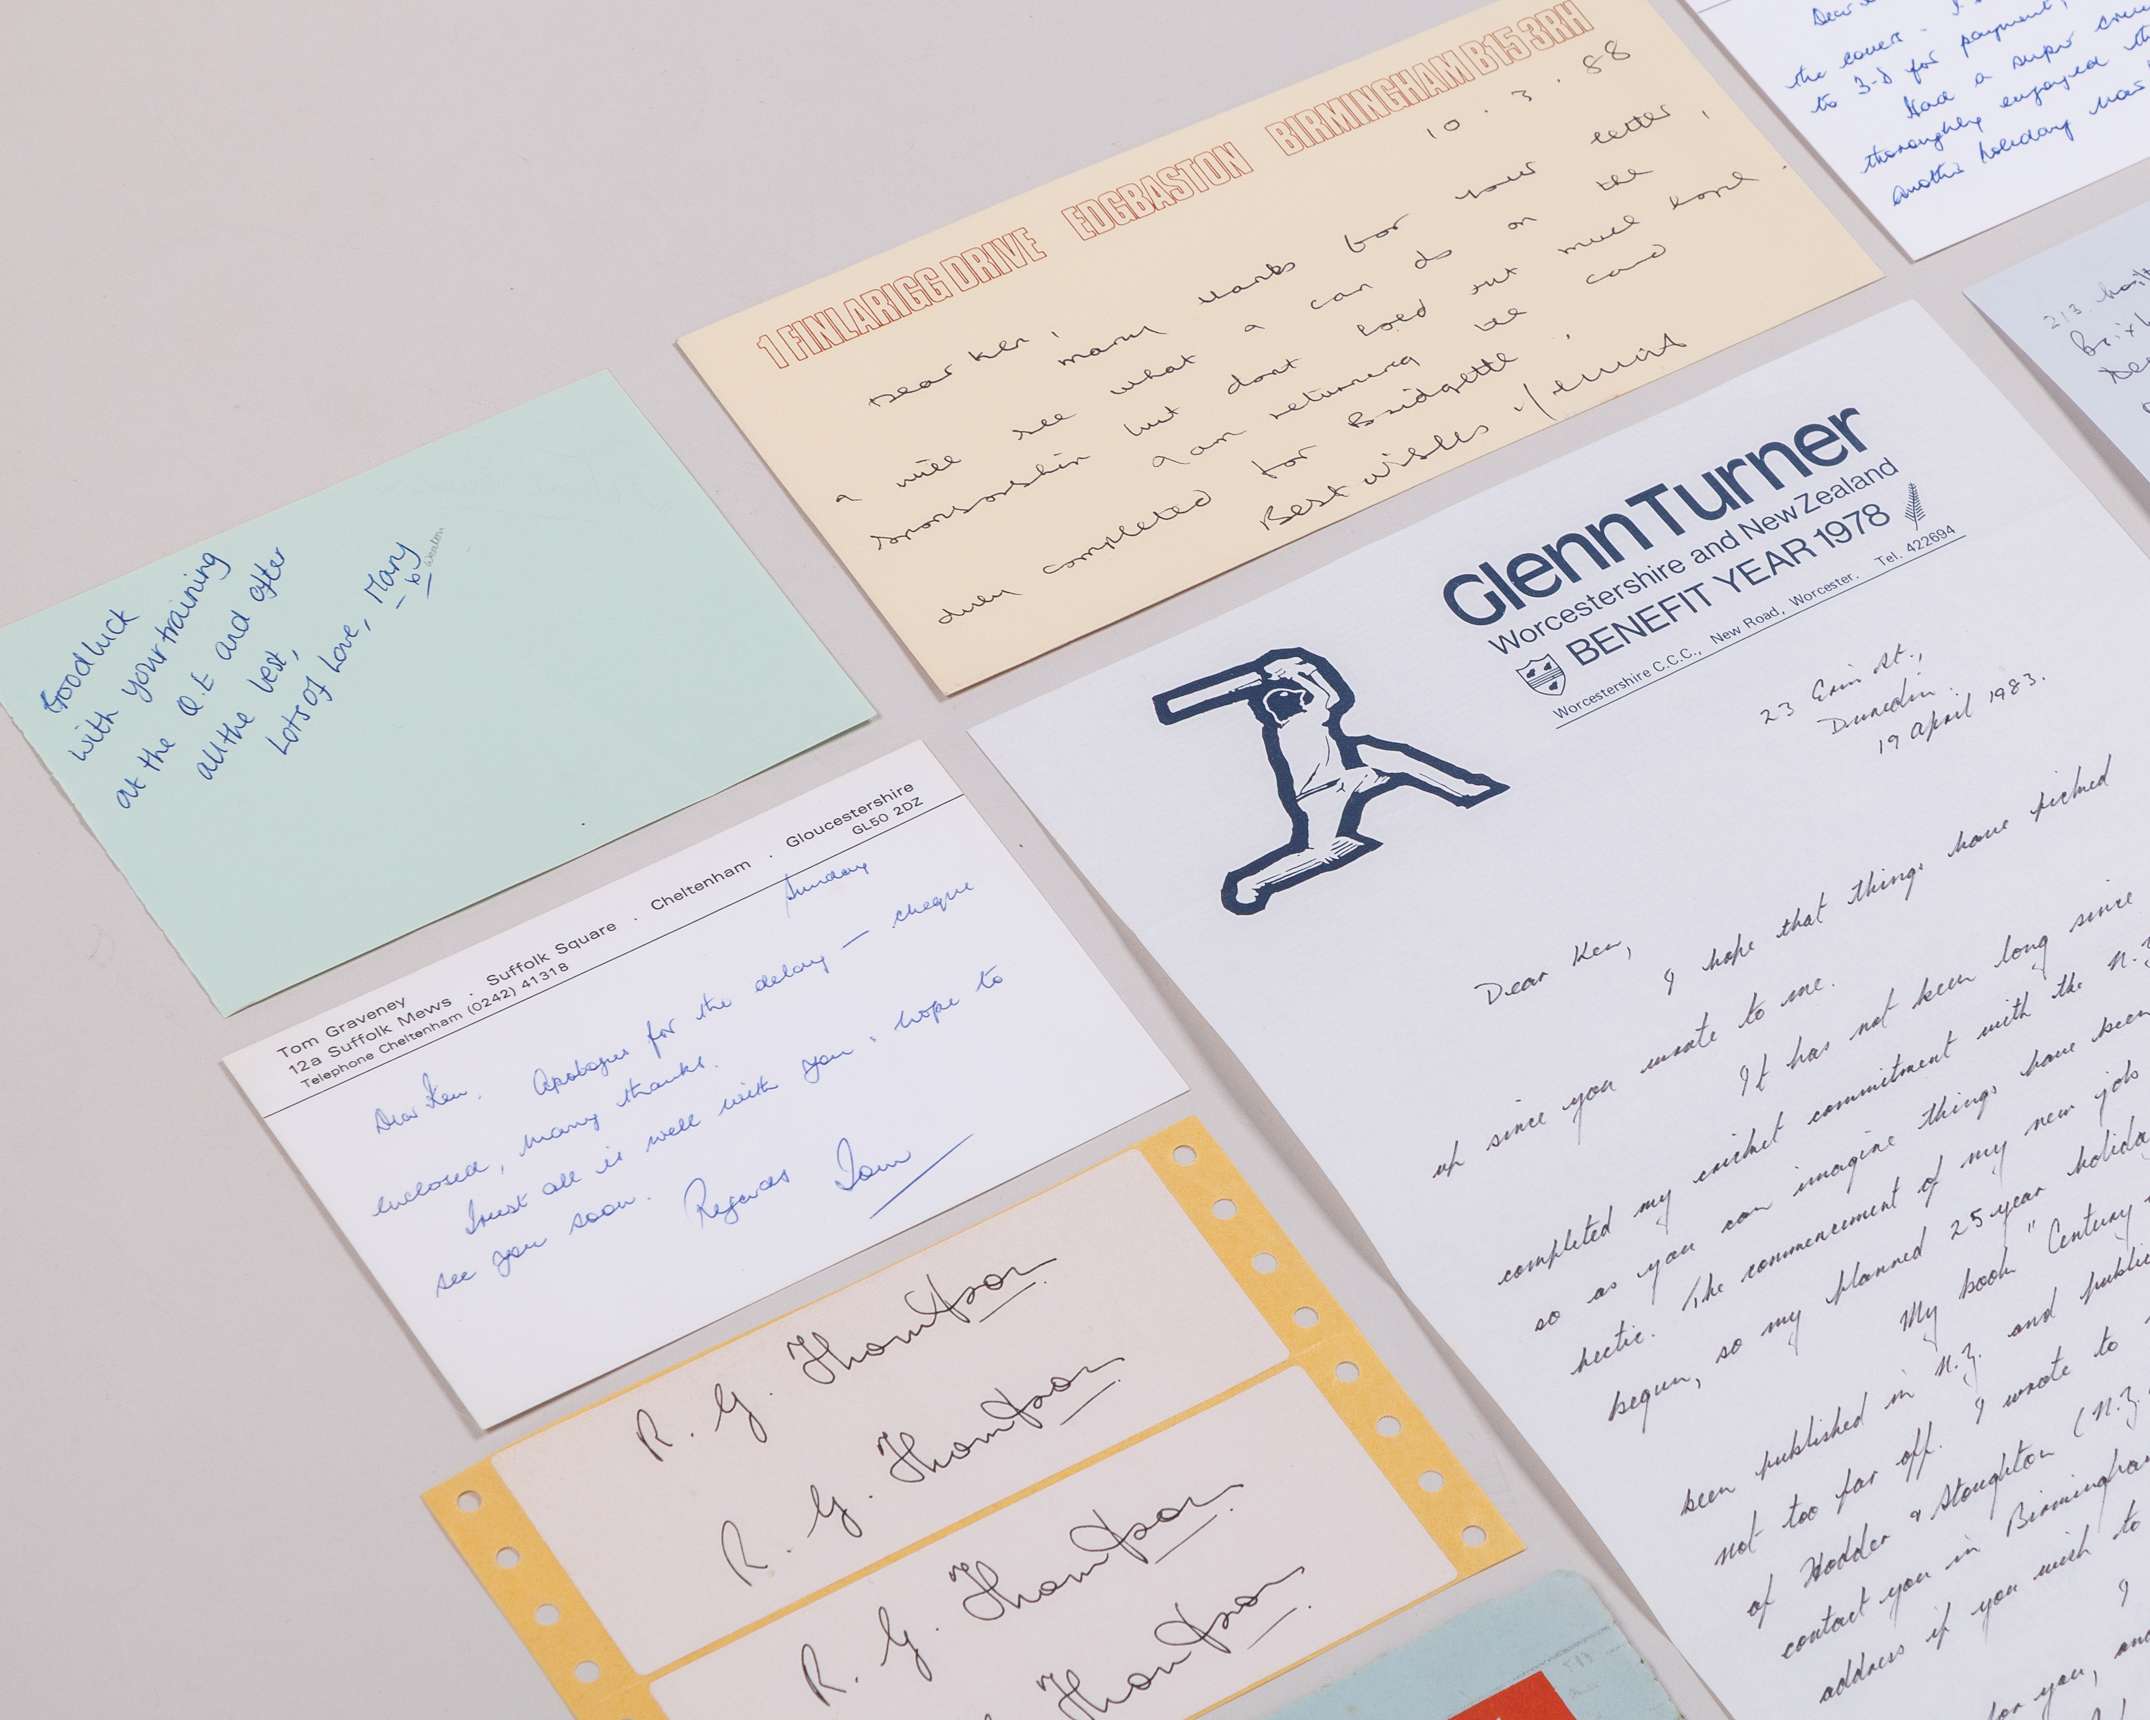 Good luck
with your training
at the Q.E and after
all the best,
Lots of Love, Mary
1 FINLARIGG DRIVE EDGBASTON BIRMINGHAM B15 3RH
10.3.88
Dear Ken,
many thanks for your letter,
I will see what I can do on the
sponsorship but dont hold out much hope.
I am returning the card
duly completed for Bridgette.
Best wishes
Dear
the cover. I
to 3-D for payment,
Had a super
thoroughly enjoyed th
another holiday
213
Brixh
De
Tom Graveney
12a Suffolk Mews . Suffolk Square . Cheltenham . Gloucestershire
Telephone Cheltenham (0242) 41318 GL50 2DZ
Sunday
Dear Ken. Apologies for the delay — cheque
enclosed, many thanks.
Trust all is well with you, hope to
see you soon. Regards Tom
GlennTurner
Worcestershire and New Zealand
BENEFIT YEAR 1978
Worcestershire C.C.C., New Road, Worcester. Tel. 422694
23 Erin St.,
Dunedin.
19 April 1983.
Dear Ken,
I hope that things have picked
up since you wrote to me.
It has not been long since
completed my cricket commitment with the N.Z
so as you can imagine things have been
hectic. The commencement of my new job
begun, so my planned 25 year holiday
My book "Century
been published in N.Z. and public
not too far off. I wrote to
of Hodder & Stoughton (N.Z.
contact you in Birmingham
address if you wish to
I
for you, and
R. G. Thompson
R. G. Thompson
R. G. Thompson
Thompson